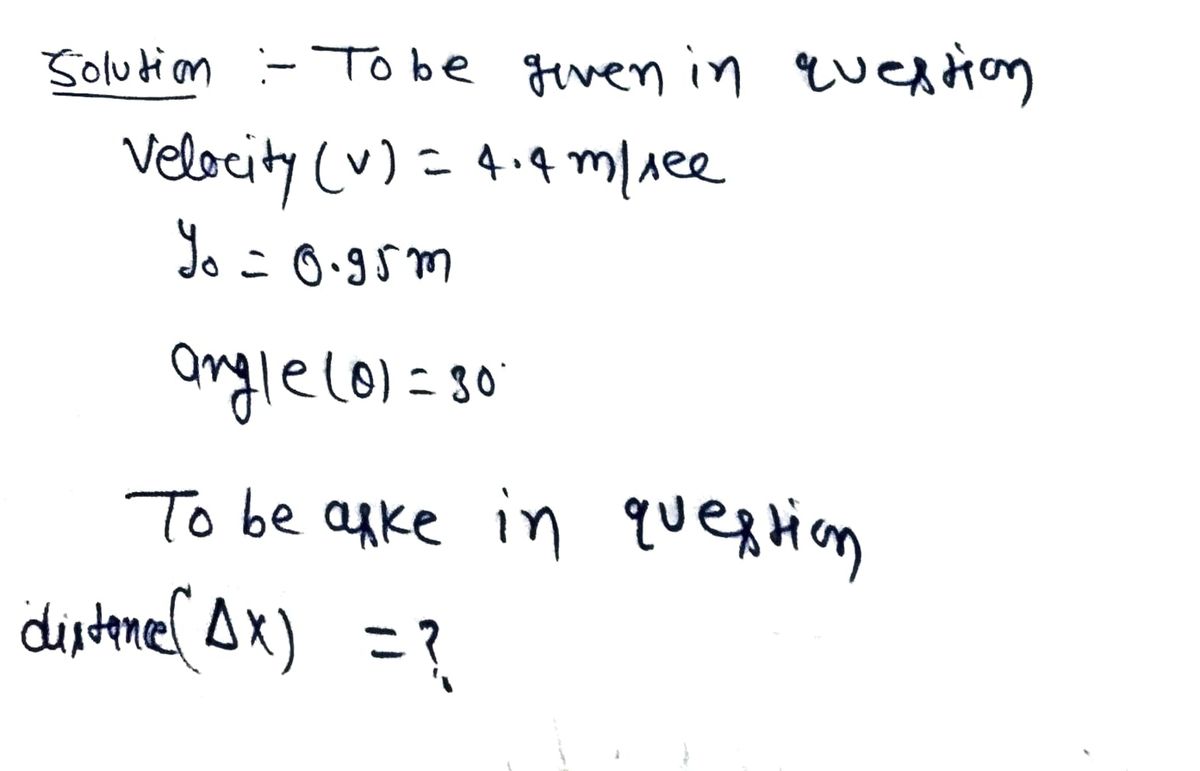 Solution :- To be given in question
Velocity (v) = 4.4 m/sec
y₀ = 0.95 m
angle (θ) = 30°
To be aske in question
distance (Δx) = ?